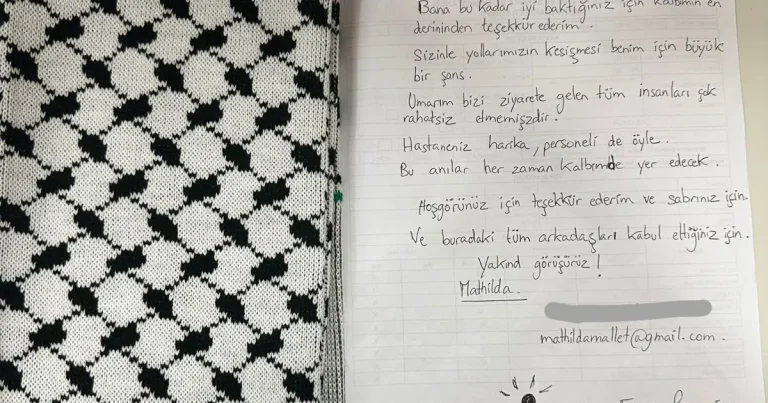 Bana bu kadar iyi baktığınız için kalbimin en
derininden teşekkür ederim.
Sizinle yollarımızın kesişmesi benim için büyük
bir şans.
Umarım bizi ziyarete gelen tüm insanları çok
rahatsiz etmemişzdir.
Hastaneniz harika, personeli de öyle.
Bu anılar her zaman kalbımde yer edecek.
Hoşgörünüz için teşekkür ederim ve sabrınız için.
Ve buradaki tüm arkadaşları kabul ettiğiniz için.
Yakind görüşürüz!
Mathilda.
mathildamallet@gmail.com.